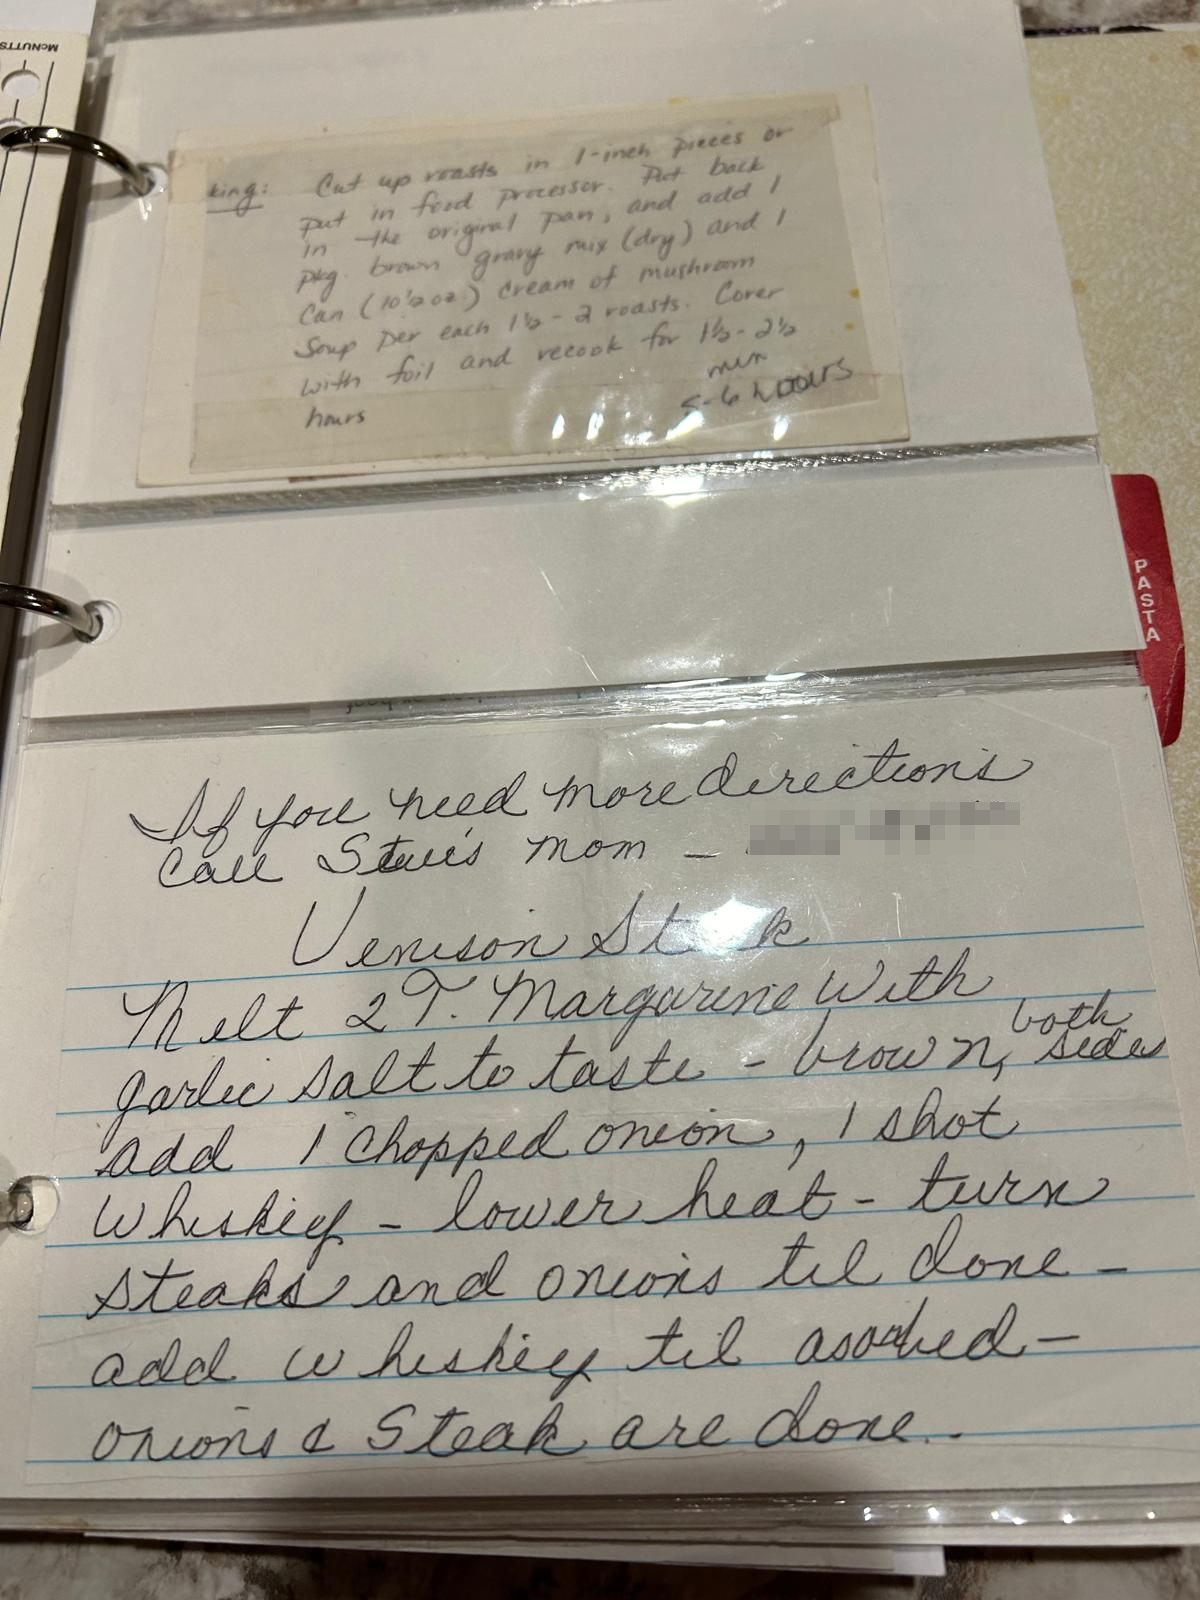 McNUTTS
king: Cut up roasts in 1-inch pieces or
put in food processor. Put back
in the original pan, and add 1
pkg. brown gravy mix (dry) and 1
Can (10½ oz.) cream of mushroom
Soup per each 1½ - 2 roasts. Cover
with foil and recook for 1½ - 2½
hours
min
5-6 hours
PASTA
If you need more directions
Call Steve's mom -
Venison St k
Melt 2 T. Margarine with
garlic salt to taste - brown, both sides
add 1 chopped onion, 1 shot
whiskey - lower heat - turn
steaks and onions til done -
add whiskey til asorbed -
onions & Steak are done.